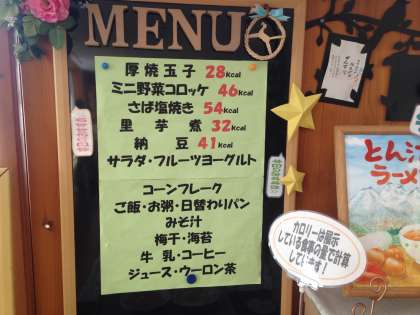 MENU
厚焼玉子 28Kcal
ミニ野菜コロッケ 46Kcal
さば塩焼き 54Kcal
里芋煮 32Kcal
納豆 41Kcal
サラダ・フルーツヨーグルト
コーンフレーク
ご飯・お粥・日替わりパン
みそ汁
梅干・海苔
牛乳・コーヒー
ジュース・ウーロン茶
カロリーは展示
している食事の量で計算
しています!
とん汁
ラーメ